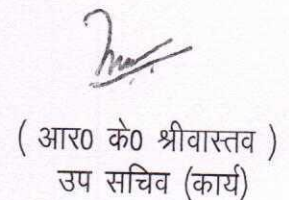 ( आर0 के0 श्रीवास्तव )
उप सचिव (कार्य)